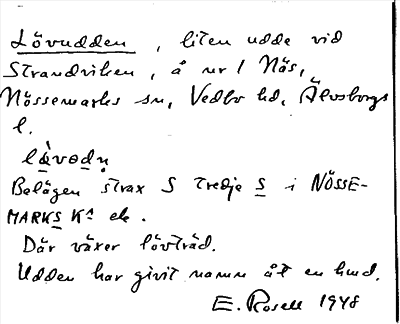 Lövudden, liten udde vid
Strandviken, å nr 1 Näs,
Nössemarks sn, Vedbo hd, Älvsborgs
l.
Belägen strax S tredje S i NÖSSE-
MARKS Ka ek.
Där växer lövträd.
Udden har givit namn åt en hmd.
E. Rosell 1948